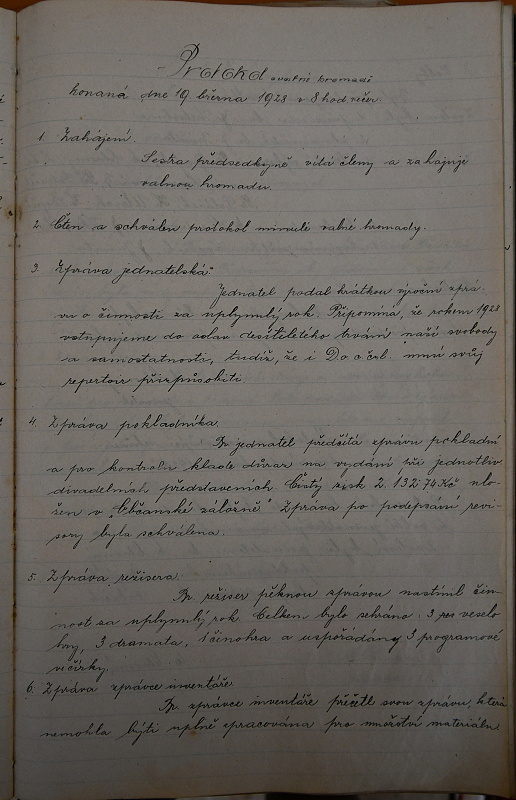 Protokol o valné hromadě
konaná dne 19 března 1928 v 8 hod večer.
1. Zahájení.
Sestra předsedkyně vítá členy a zahajuje
valnou hromadu.
2. Čten a schválen protokol minulé valné hromady.
3. Zpráva jednatelská.
Jednatel podal krátkou výroční zprá-
vu o činnosti za uplynulý rok. Připomíná, že rokem 1928
vstupujeme do oslav desítiletého trvání naší svobody
a samostatnosti, tudíž, že i D.o. a čsl. musí svůj
repertoir přizpůsobiti.
4. Zpráva pokladníka.
Br jednatel předčítá zprávu pokladní
a pro kontrolu klade důraz na vydání při jednotliv
divadelních představeních. Čistý zisk 2.132.74 Kč ulo-
žen v "Občanské záložně" Zpráva po podepsání revi-
sory byla schválena.
5. Zpráva režisera.
Br. režiser pěknou zprávou nastínil čin-
nost za uplynulý rok. Celkem bylo sehráno: 3 veselo
hry, 3 dramata, 1 činohra a uspořádány 3 programové
večírky.
6. Zpráva zprávce inventáře
Br. zprávce inventáře přečetl svou zprávu, která
nemohla býti uplně zpracována pro množství materiálu